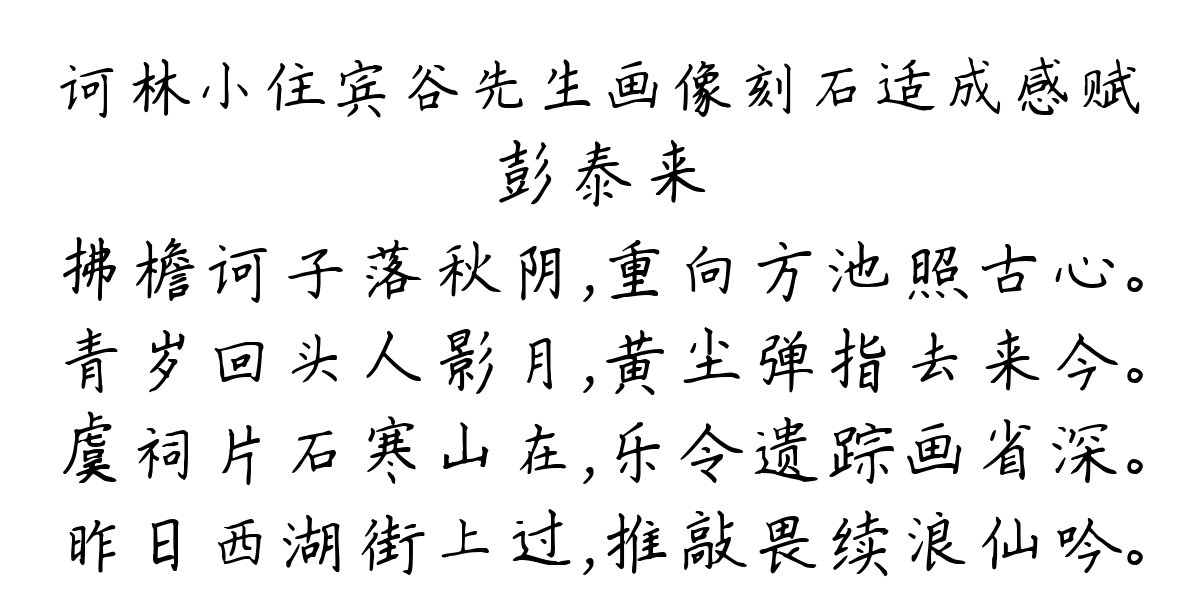 诃林小住宾谷先生画像刻石适成感赋
彭泰来
拂檐诃子落秋阴,重向方池照古心。
青岁回头人影月,黄尘弹指去来今。
虞祠片石寒山在,乐令遗踪画省深。
昨日西湖街上过,推敲畏续浪仙吟。